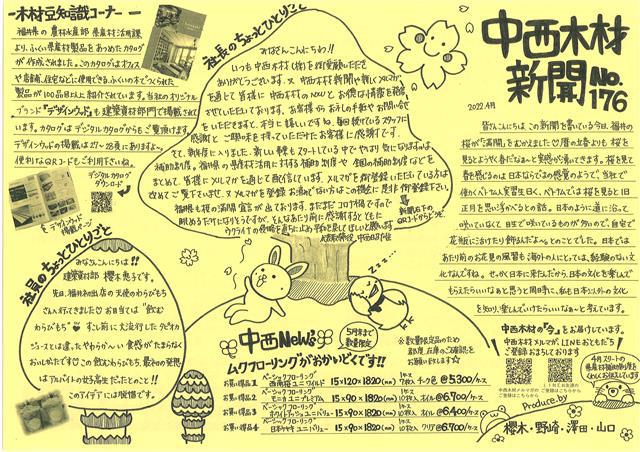 中西木材
新聞 No.176
2022.4月
皆さんこんにちは この新聞を書いている今日、福井の
桜が「満開」をむかえました♡暦の上春よりも 桜を
見るとようやく春だなぁ～と実感が湧いてきます。桜を見て
春を感じるのは 日本ならではの感覚のようで、当社で
働かれベトナム人実習生曰く、ベトナムでは桜を見ると旧
正月を思い浮かべるとの話。日本のように道に沿って
咲いていなくて 自生で咲いているものが多いので、自宅で
花瓶にさけたり飾るんだよ～とのことでした。日本では
あたり前のお花見の風習も 海外の人にとっては、経験のない文
化なんですね。せっかく日本に来たんだから、日本の文化を楽しんで
もらえたらいいなぁと思うと同時に、私も日本以外の文化
を知り、楽しんでいけたらいいなぁ～と考えています。
中西木材の"今"をお届けしています。
中西木材メルマガ、LINEおともだち
ご登録おまちしております
4月スタートの
Produce.by
櫻木・野崎・澤田・山口
社長のちょっとひとりごと
みなさんこんにちわ!!
いつも中西木材(株)を御愛顧いただき
ありがとうございます。又 中西木材新聞や新しくメルマガ
を通じて皆様に 中西木材のNowと お得な情報を発信
させていただいております。お客様からお礼の手紙や お問い合せ
をいただきますと、本当に嬉しいですね。毎回持っているスタッフに
感謝と ご興味を持っていただけたお客様に感謝です。
さて、新年度に入りました。新しい種もスタートしている中で やはり気になりますのは
補助制度。福井県の県産材活用に対する補助制度や 今国の補助制度などを
まとめて、皆様にメルマガを通して配信しています。メルマガを御登録いただいている方は
改めてご覧下さいませ。又 メルマガを登録お済でない方はこの機会に是非御登録下さい。
福県も桜の満開宣言が出ております。まだまだコロナ禍ですので
眺めるだけになりそうですが、そんなあたり前に感謝するとともに
ウクライナの侵略を直ちに止め 平和を戻してほしいと願います
代表取締役 中西昭浩
新聞右下の
QRコードからどうぞ
－木材豆知識コーナー－
福井県の 農林水産部 県産材活用課
より、ふくい県産材製品をあつめたカタログ
が作成されました。このカタログはオフィス
や店舗、住宅などに使用できる、ふくいの木でつくられた
製品が 100品目以上紹介されています。当社のオリジナル
ブランド『デザインウッド』も建築資材部門で掲載されて
います。カタログはデジタルカタログからもご覧頂けます。
デザインウッドの掲載は27～28頁にありますよ～。
便利なQRコードもご利用下さいね。
デジタルカタログ
ダウンロード
デザインウッド
掲載ページ
社員のちょっとひとりごと
みなさんこんにちは!!
建築資材部 櫻木恵子です。
先日、福井初出店の天使のわらびもち
さんへ行きました♡お目当ては "飲む
わらびもち"♥ 少し前に大流行したタピオカ
ジュースとは違った、やわらか～い食感がたまらなく
おいしかったです♡この飲むわらびもち、最初の発想
は アルバイトの女子高生だったとのこと!!
このアイデアには脱帽です。
中西New's
5月末まで
数量限定
※数量限定品のため
都度、在庫のご確認を
お願い致します☆
ムクフローリングがおかいどくです!!
お買い得品1 ベーシックフローリング 西南桜ユニ ワイルド 15×120×1820(mm) 1ケース 7枚入 チーク色 @5,300/ケース
お買い得品2 ベーシックフローリング 15×90×1820(mm) 1ケース 10枚入 オイル @6,700/ケース
お買い得品3 ベーシックフローリング 15×90×1820(mm) 1ケース 10枚入 オイル @6,400/ケース
お買い得品4 ベーシックフローリング 15×90×1820(mm) 1ケース 10枚入 クリア @6,700/ケース